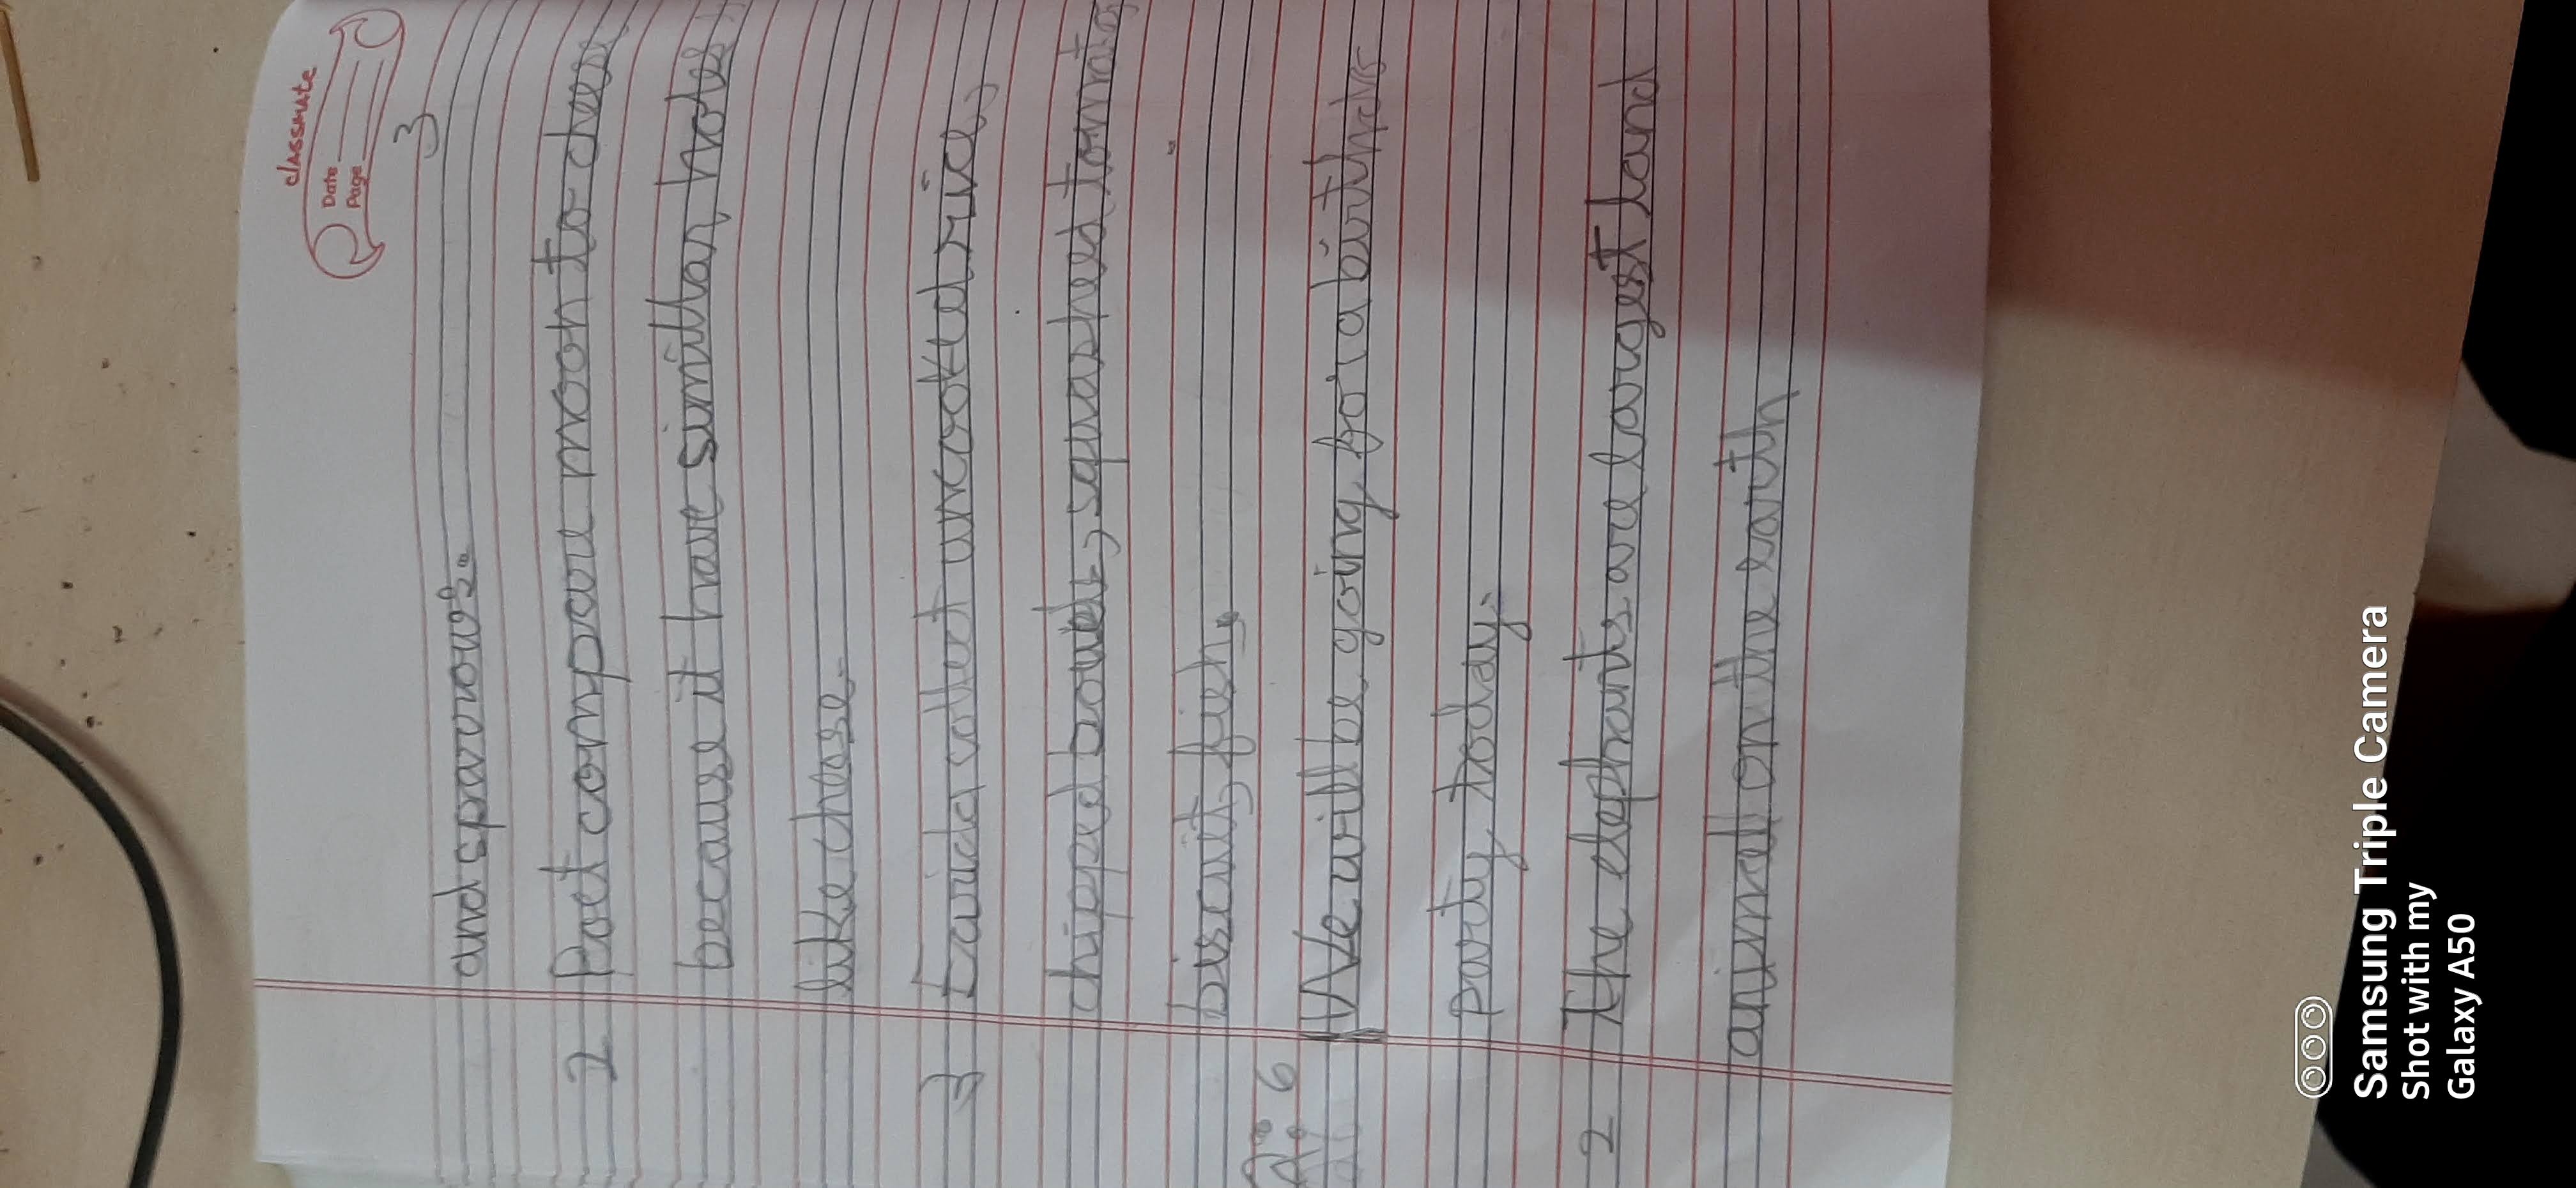 classmate
Date
Page
3
and sparrows.
2 Poet compare moon to cheese
because it have simillar holes
like cheese.
3 Farida collect uncooked rice,
chipped bowls, squasheed tomato
biscuit, fish.
A: 6
We will be going for a birthda
party today.
2 The elephants are largest land
animall on the earth
Samsung Triple Camera
Shot with my
Galaxy A50